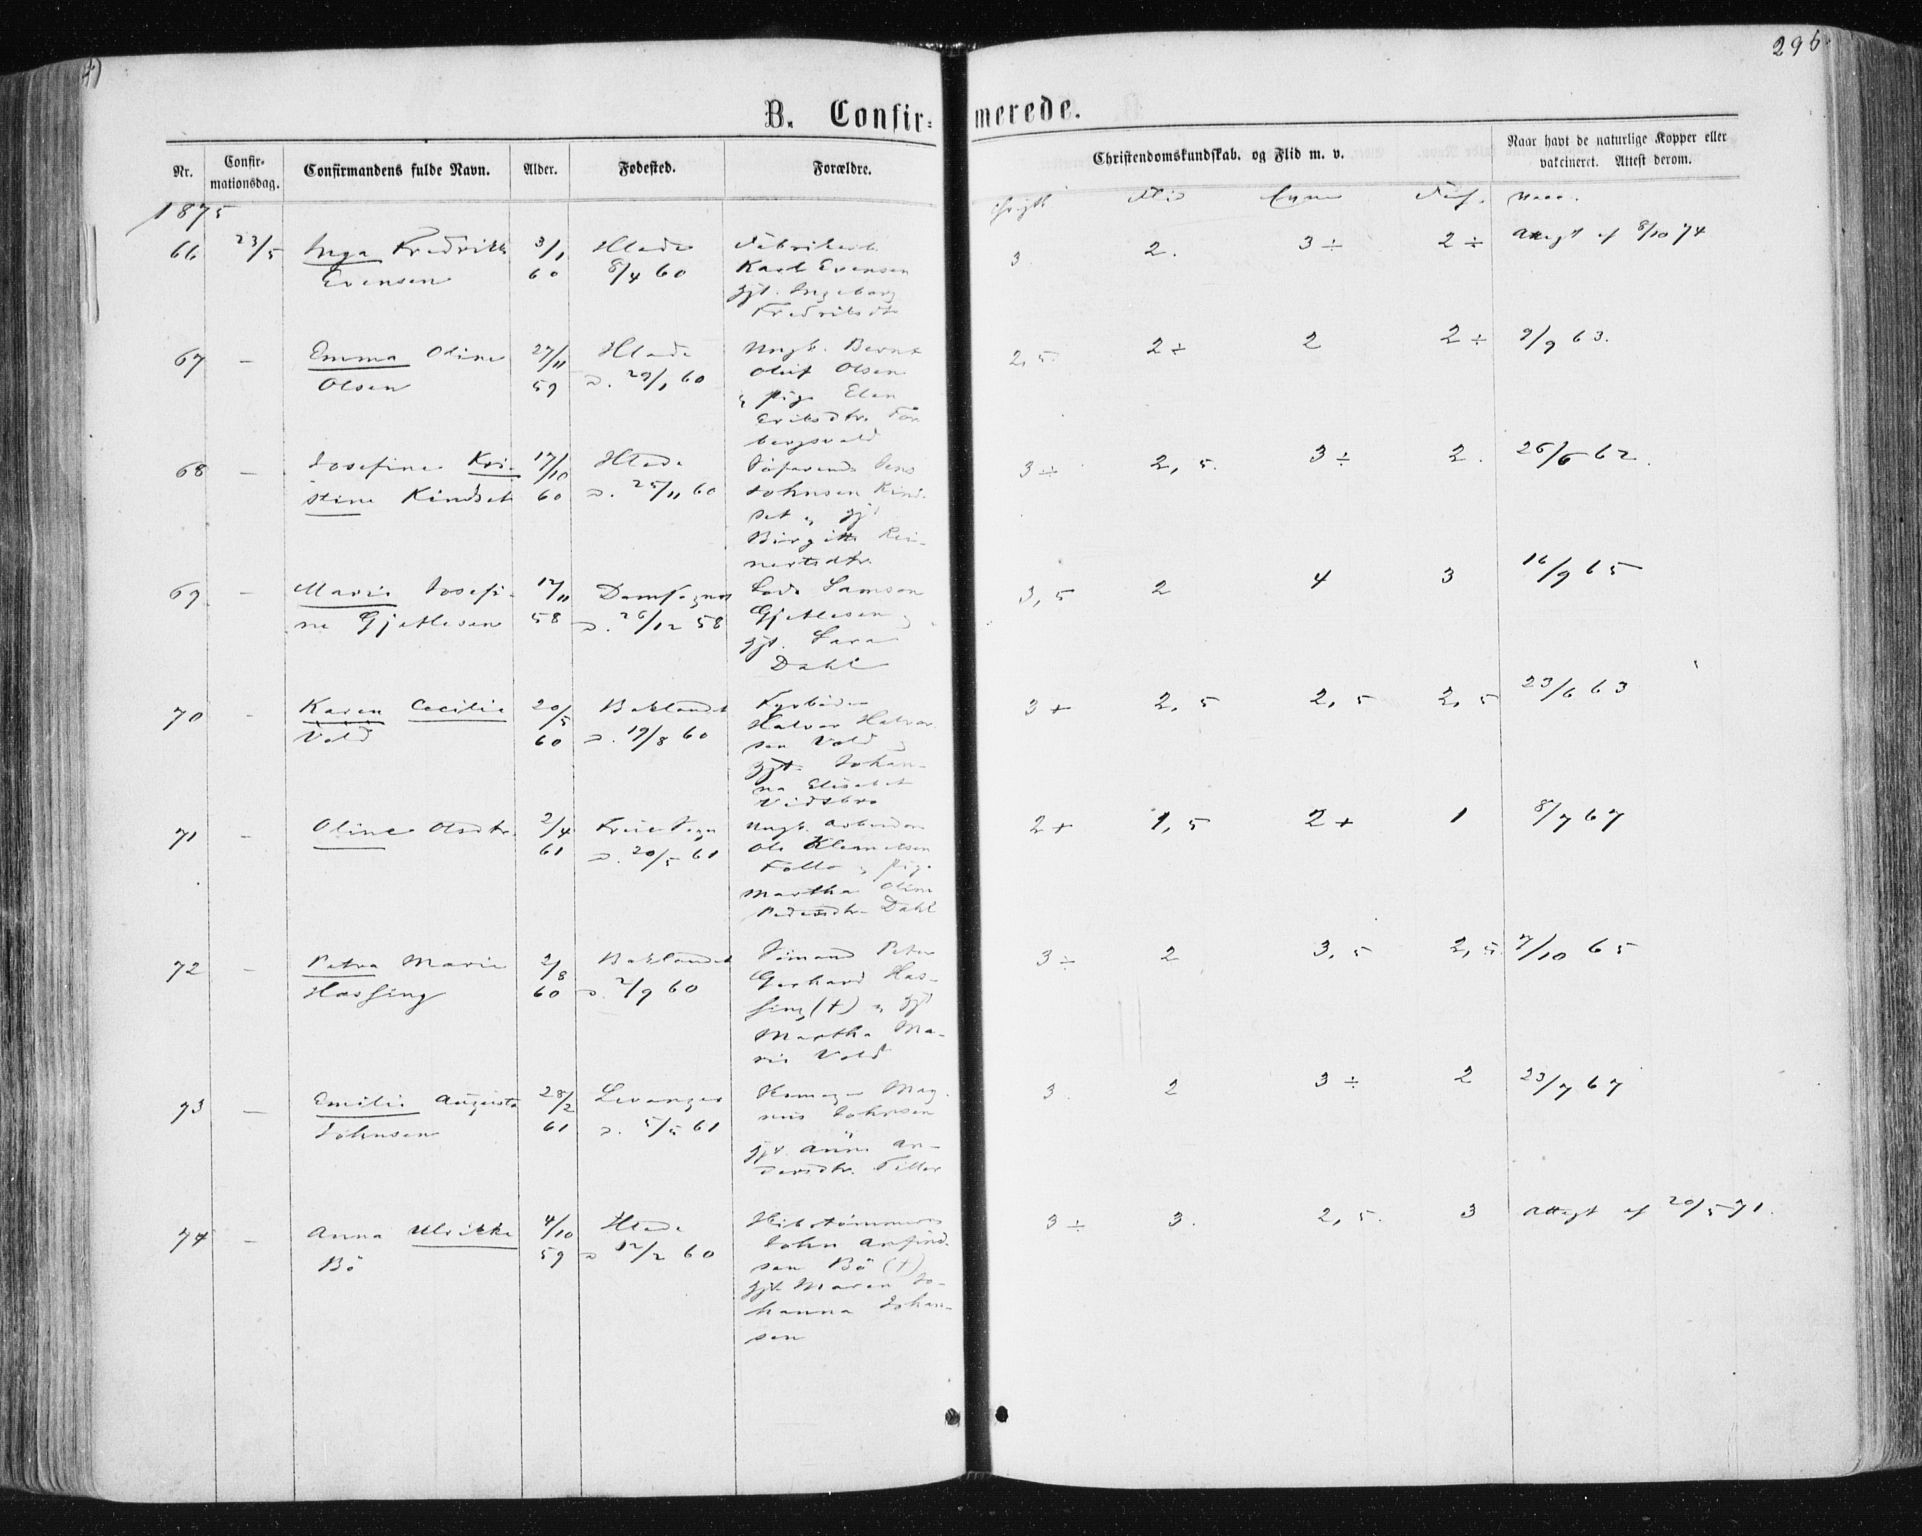 296.
B. Confir-merede.
Nr. Confir-mationsdag. Confirmandens fulde Navn. Alder. Fødested. Forældre. Christendomskundskab. og Flid m. v. Naar havt de naturlige Kopper eller vakcineret. Attest derom.
1875 Flid Evne Vacc.
66 23/5 Inga Fredrikke 3/1 Hlade 3 2. 3÷ 2÷ 8/10 74
Evensen 60 8/4 60 Karl Evensen
gjt. Ingeborg
Fredriksdtr
67 - Emma Oline 27/11 Hlade Ungk. Bernt 2,5 2÷ 2 2÷ 9/9 63.
Olsen 59 d. 29/1 60 Oluf Olsen
pige Elen
Eriksdtr. For
bergsvald
68 - Josefine Kri- 17/10 Hlade Søfarende Jens 3÷ 2,5. 3÷ 2. 26/6 62.
stine Kindset 60 d. 25/11 60 Johnsen Kind-
set og gjt
Birgitte Rei-
nertsdtr.
69 - Marie Josefi- 17/11 Domsognet Lods Samson 3,5 2 4 3 16/9 65
ne Gjetlesen 58 d. 26/12 58 Gjetlesen og
gjt. Sara
Dahl
70 - Karen Cecilie 20/5 Baklandet Fyrbøder 3+ 2,5 2,5 2,5 23/6 63
Vold 60 d. 19/8 60 Halvor Halvor
sen Vold og
gjt. Johan-
na Elisabet
71 - Oline Olsdtr. 2/4 Ungk. Arbeider 2+ 1,5 2+ 1 8/7 67
61 d. 20/5 61 Ole Klemetsen
Follo og pige
Martha Oline
Pedersdtr. Dahl
72 - Petra Marie 2/8 Baklandet Sømand Peter 3÷ 2 3,5 2,5. 7/10 65
Hassing 60 d. 2/9 60 Gerhard Has-
sing (†) og gjt
Martha Ma-
rie Vold
73 - Emilie Augusta 28/2 Levanger Mag- 3. 2 3÷ 2 23/7 67
Johnsen 61 d. 5/5 61 nus Johnsen
gjt. Anne An-
dersdtr. Tiller
74 - Anna Ulrikke 4/10 Hlade 3÷ 3. 2,5. 3 Attest af 20/5 71.
Bö 59 d 12/2 60 John Arfind-
sen Bö (†)
gjt Maren Jo-
hanna Johan-
sen